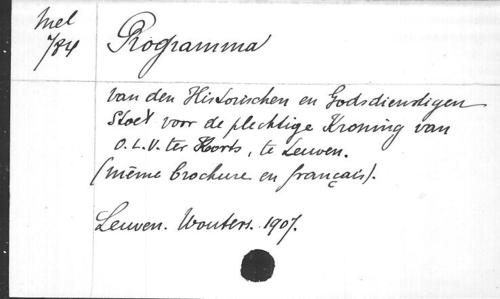 Mel
784
Programma
van den Historischen en Godsdienstigen
Stoet voor de plechtige Kroning van
O.L.V. ter Koorts, te Leuven.
(même brochure en français).
Leuven. Wouters. 1907.